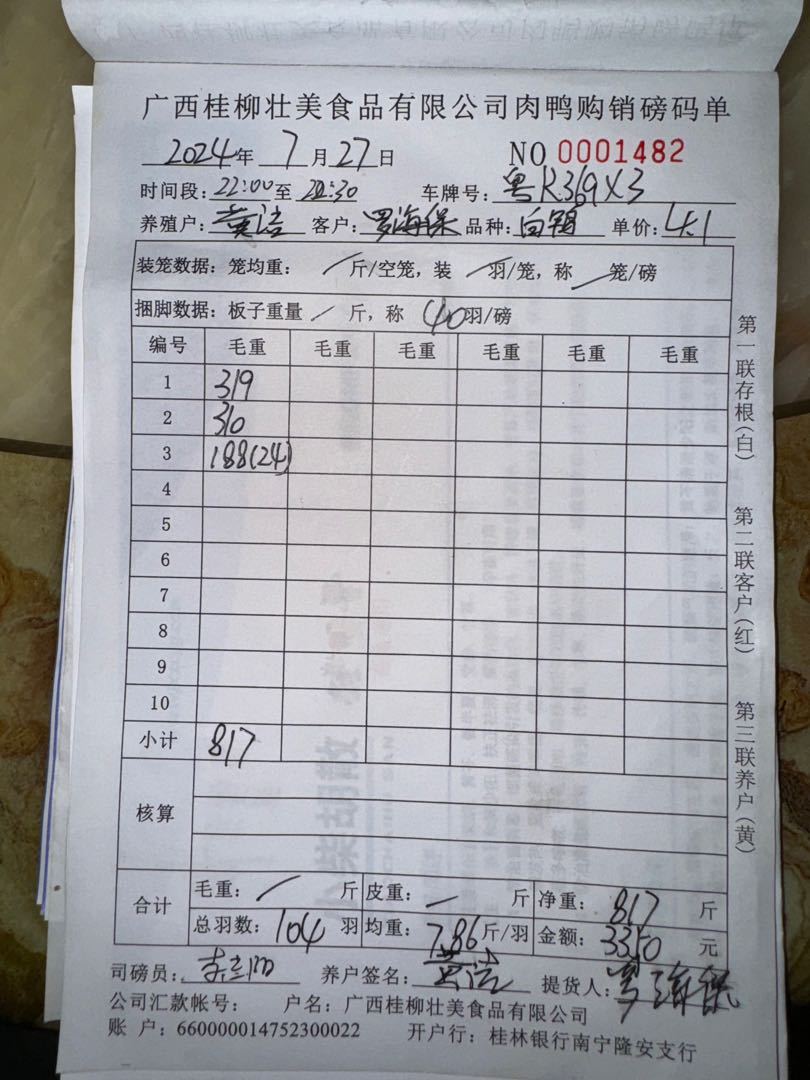 广西桂柳壮美食品有限公司肉鸭购销磅码单
2024年 7月27日 NO 0001482
时间段:22:00至22:30 车牌号:粤K369X3
养殖户:黄洁 客户:罗海保 品种:白鸭 单价:4.1
装笼数据:笼均重: / 斤/空笼,装 / 羽/笼,称 / 笼/磅
捆脚数据:板子重量 / 斤,称 40羽/磅
编号 毛重 毛重 毛重 毛重 毛重 毛重
1 319
2 310
3 188(24)
4
5
6
7
8
9
10
小计 817
核算
合计 毛重: / 斤 皮重: — 斤 净重: 817 斤
总羽数:104 羽 均重:7.86斤/羽 金额:3350元
司磅员: 养户签名:黄洁 提货人:罗海保
公司汇款帐号: 户名:广西桂柳壮美食品有限公司
账 户:660000014752300022 开户行:桂林银行南宁隆安支行
第一联存根(白)
第二联客户(红)
第三联养户(黄)